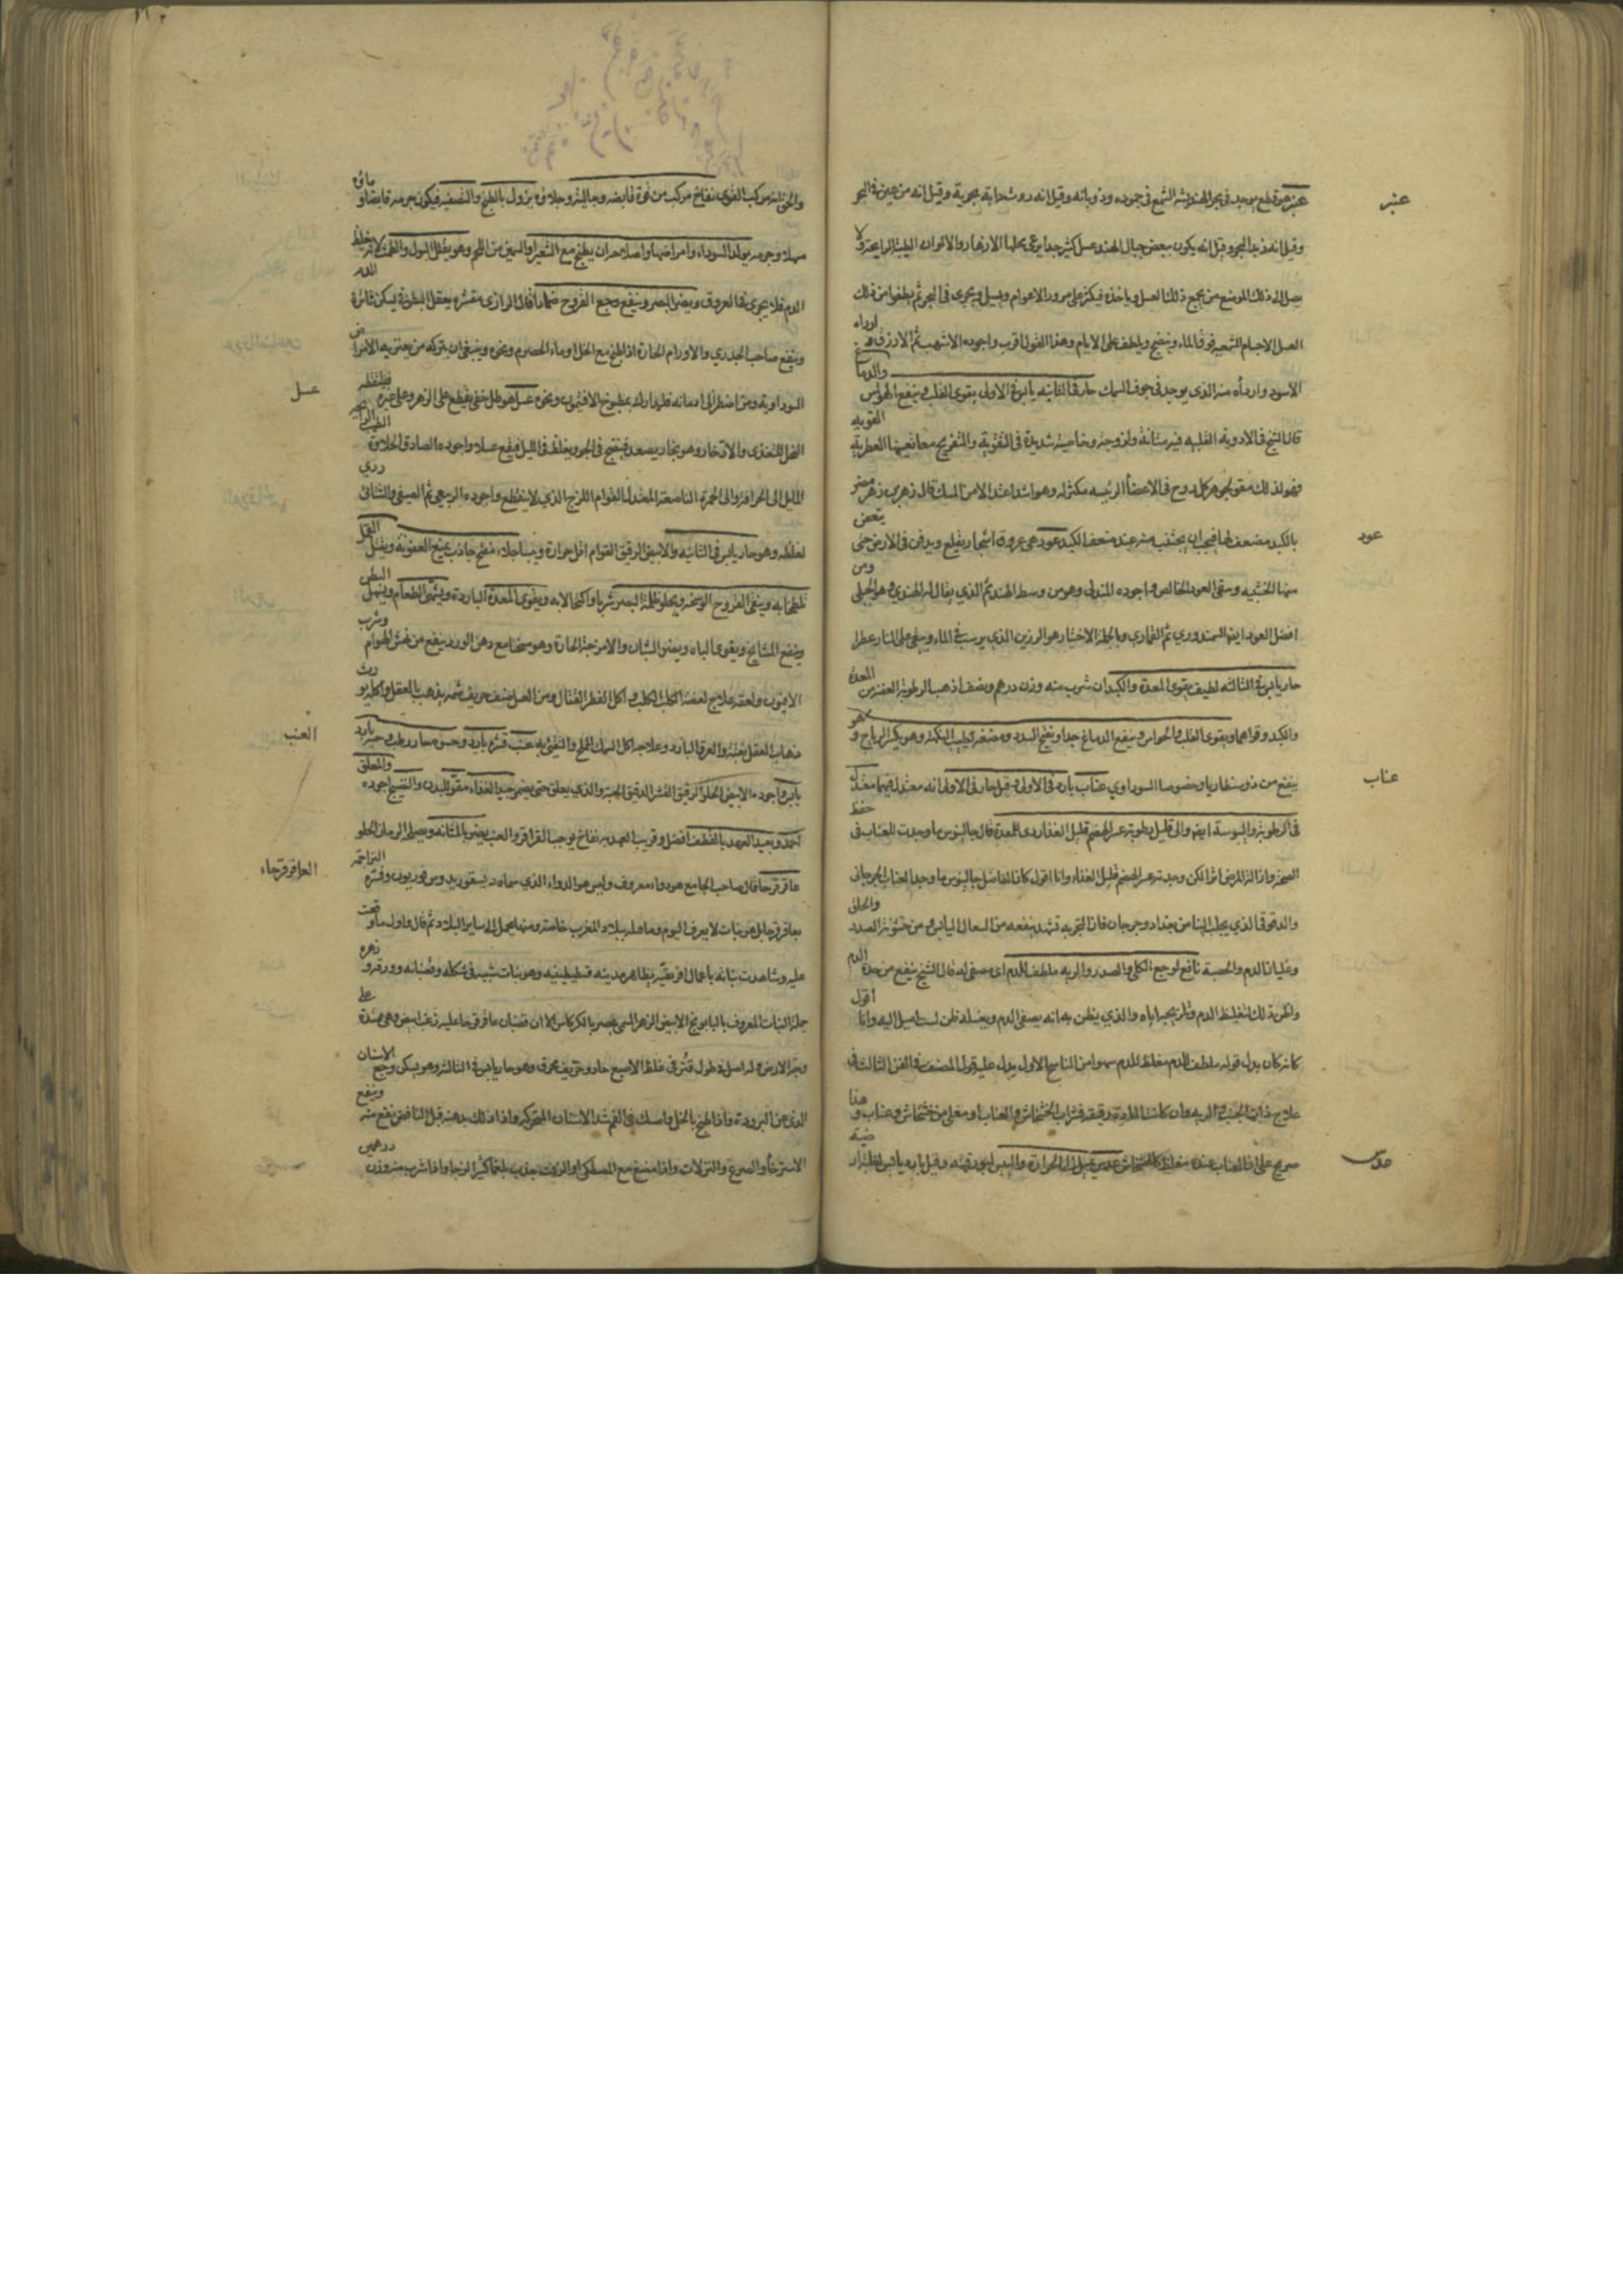 عنبر
عنبر هو قطع يوجد فى بحر الهند يشبه الشمع فى جموده وذوبانه وقيل انه روث دابة بحرية وقيل انه من عين فى البحر
وقيل انه زبد البحر وقيل انه يكون ببعض جبال الهند عسل كثير جدا يرعى نحلها الازهار والالوان الطيبة الرايحة ولا
يصل الى ذلك الموضع من يجمع ذلك العسل وياخذه فيكثر على مرور الاعوام ويسيل ويجرى فى البحر ثم يطفو من ذلك
العسل الاجسام الشمعية فوق الماء وينضج ويلطف على الايام وهذا القول اقرب واجوده الاشهب ثم الازرق وارداه
الاسود وارداه منه الذى يوجد فى جوف السمك حار فى الثانيه يابس فى الاولى يقوى القلب وينفع الحواس والدماغ
قال الشيخ فى الادوية القلبيه فيه متانة ولزوجة وخاصية شديدة فى التقوية والتفريح معا تعينها العطرية القوية
وهو لذلك مقو لجوهر كل روح فى الاعضا الرئيسه مكثر له وهو اشد اعتدالا من المسك قال زهر بن زهر مضر
عود
بالكبد مضعف لها فيجب ان يجتنب منه عند ضعف الكبد عود هى عروق اشجار يقلع ويدفن فى الارض حتى يتعفن
منها الخشبيه ويبقى العود الخالص واجوده المندلى وهو من وسط الهند ثم الذي يقال له الهندي وهو الجبلى ومن
افضل العود ايضا السمندوري ثم القمارى وبالجملة الاختيار هو الرزين الذي يرسب فى الماء ويبقى على النار عطرا
حار يابس فى الثالثه لطيف يقوى المعدة والكبد ان شرب منه وزن درهم ونصف اذهب الرطوبة العفنة من المعدة
والكبد وقواهما ويقوى القلب والحواس وينفع الدماغ جدا ويفتح السدد ومضغه يطيب النكهة وهو يكسر الرياح وهو
عناب
ينفع من ذوسنطاريا وخصوصا السوداوي عناب بارد فى الاولى وقيل حار فى الاولى انه معتدل فيهما معتدل
فى الرطوبة واليبوسة ايضا والى قليل رطوبة عسر الهضم قليل الغذا ردى للمعدة قال جالينوس ما وجدت للعناب فى حفظ
الصحة وازالة المرض اثرا لكن وجدته عسر الهضم قليل الغذاء وانا اقول كان الفاضل جالينوس ما وجد العناب الجرجانى
والدقوقى الذي يجلب الينا من بغداد وجرجان فان التجربة تشهد بنفعه من السعال اليابس ومن خشونة الصدر والحلق
وغليان الدم والحصبة نافع لوجع الكلى والصدر والريه ملطف للدم اى مصفى له قال الشيخ ينفع من حدة الدم
واظن ذلك لتغليظ الدم وتلزيجه اياه والذي يظن به انه يصفى الدم ويغسله ظن لست اميل اليه وانا اقول
كانه كان بدل قوله ملطف للدم مغلظ للدم سهوا من الناسخ الاول يدل عليه قول المصنف فى الفن الثالث فى
علاج ذات الجنب والريه وان كانت المادة رقيقة فشراب الخشخاش والعناب او مغلى من خشخاش وعناب وهذا
عدس
صريح على ان العناب عنده مغلظ كالخشخاش عدس يميل الى الحرارة واليبس لجودة فيه وقيل بارد يابس
والحق انه مركب القوى نفاخ مركب من قوة قابضه وجالية وحلاوة يزول بالطبخ والتصفية فيكون جرمه قابضا وماؤه
مسهلا وجرمه يولد السوداء وامراضها واصلاحه ان يطبخ مع الشعير او السمين من اللحم وهو يقلل البول والطمث لانه يغلظ الدم
الدم فلا يجرى فى العروق ويضر البصر وينفع وجع القروح ضمادا قال الرازى مقشره يعقل البطن ويسكن ثائرة
وينفع صاحب الجدري والاورام الحارة اذا طبخ مع الخل او ماء الحصرم ونحوه وينبغى ان يتركه من يعتريه الامراض
عسل
السوداوية ومن اضطر الى ادمانه فليتداركه بمطبوخ الافتيمون ونحوه عسل هو طل خفى يقع على الزهر وعلى غيره فيلقطه
النحل للتغذى والادخار وهو بخار يصعد فينضج فى الجو ويغلظ فى الليل فيقع عسلا واجوده الصادق الحلاوة الطيب الرائحة
المايل الى الحرافة والى الحمرة الناصعة المعتدل القوام اللزج الذي لا ينقطع واجوده الربيعى ثم الصيفى والشتائى ردى
لغلظه وهو حار يابس فى الثانيه والابيض الرقيق القوام اقل حرارة ويبسا جلاء مفتح جاذب يمنع العفونة ويقتل القمل
لطخا به وينقى القروح الوسخة ويجلو ظلمة البصر شربا واكتحالا به ويقوى المعدة الباردة ويشهى الطعام ويسهل البطن
وينفع المشايخ ويقوى الباه ويضر الشبان والامزجة الحارة وهو سخنا مع دهن الورد ينفع من نهش الهوام وشرب
الافيون ولعقه علاج لعضة الكلب الكلب واكل الفطر القتال ومن العسل صنف حريف شمه يذهب بالعقل واكله يورث
العنب
ذهاب العقل بغتة والعرق البارد وعلاجه اكل السمك المالح والتقئ به عنب قشره بارد وحشوه حار رطب وحبه بارد
يابس واجوده الابيض الحلو الرقيق القشر الدقيق الحبة والذي يعلق حتى يضمر جيد الغذاء مقو للبدن والنضيج اجوده والمعلق
احمد وبعيد العهد بالقطف افضل وقريب العهد به نفاخ يوجب القراقر والعنب يضر بالمثانه ويصلحه الرمان الحلو
العاقرقرحاء
عاقر قرحا قال صاحب الجامع هو دواء معروف وليس هو الدواء الذي سماه ديسقوريدوس فوريون وفسره التراجمة
بعاقرقرحا بل هو نبات لا يعرف اليوم وما قبله ببلاد المغرب خاصة ومنها يحمل الى ساير البلاد ثم قال واول ما وقعت
عليه وشاهدت نباته باعمال افريقيه بظاهر مدينة قسطنطينيه وهو نبات شبيه فى شكله وقضبانه وورقه وزهره
جملة النبات المعروف بالبابونج الابيض الزهر المسمى بمصر بالكركاس الا ان قضبان عاقرقرحا عليه زغب ابيض وهى ممتدة على
وجه الارض وله اصل فى طول فتر فى غلظ الاصبع حار وحريف محرق وهو حار يابس فى الثالثة وهو يسكن وجع الاسنان
الذى عن البرودة واذا طبخ بالخل وامسك فى الفم شد الاسنان المتحركه واذا دلك بدهنه قبل النافض نفع منه وينفع
الاسترخا والصرع والنزلات واذا مضغ مع المصطكى او الزفت جذب بلغما كثيرا لزجا واذا شرب منه وزن درهمين